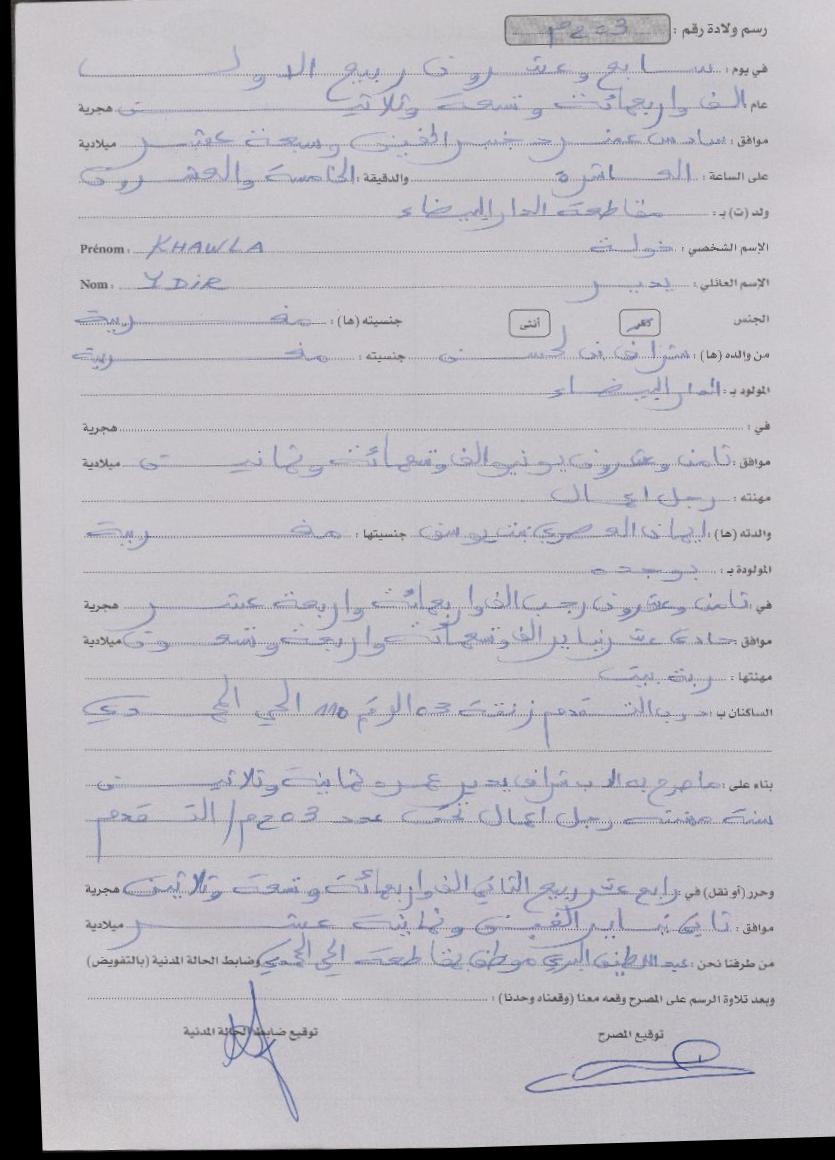 رسم ولادة رقم :
في يوم : سابع وعشرون ربيع الاول
عام الف واربعمائة وتسعة وثلاثين هجرية
موافق : سادس عشر دجنبر الفين وسبعة عشر ميلادية
على الساعة : العاشرة والدقيقة : الخامسة والعشرون
ولد (ت) بـ : مقاطعة الدار البيضاء
الإسم الشخصي : خولة Prénom : KHAWLA
الإسم العائلي : يدير Nom : YDIR
الجنس ذكر أنثى جنسيته (ها) : مغربية
من والده (ها) : بن الحسن جنسيته : مغربية
المولود بـ : الدار البيضاء
في : هجرية
موافق : ثامن وعشرون يونيو الف وتسعمائة وثمانين ميلادية
مهنته : رجل اعمال
والدته (ها) : ايمان بنت يوسف جنسيتها : مغربية
المولودة بـ : بوجدة
في : ثامن وعشرون رجب الف واربعمائة واربعة عشر هجرية
موافق حادي عشر يناير الف وتسعمائة واربعة وتسعون ميلادية
مهنتها : ربة بيت
الساكنان ب : درب التقدم زنقة 03 الرقم 110 الحي المحمدي
بناء على : ما صرح به الاب يدير عمره ثمانية وثلاثين
سنة مهنته رجل اعمال تحت عدد التقدم
وحرر (أو نقل) في : رابع عشر ربيع الثاني الف واربعمائة وتسعة وثلاثين هجرية
موافق : ثاني يناير الفين وثمانية عشر ميلادية
من طرفنا نحن : عبد اللطيف موظف بمقاطعة الحي المحمدي وضابط الحالة المدنية (بالتفويض)
وبعد تلاوة الرسم على المصرح وقعه معنا (وقعناه وحدنا) :
توقيع المصرح توقيع ضابط الحالة المدنية